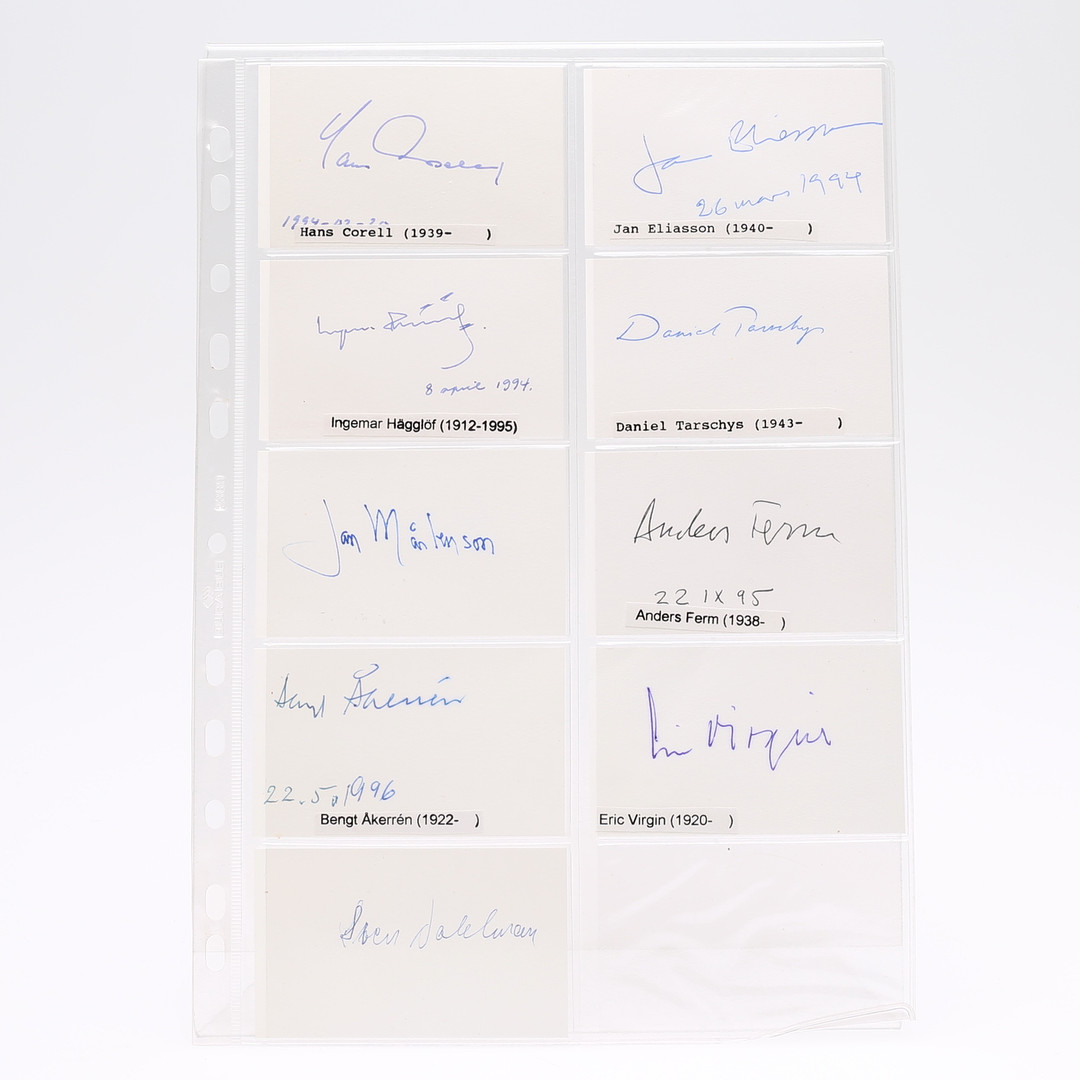 Hans Corell
1994-
Hans Corell (1939- )
Jan Eliasson
26 mars 1994
Jan Eliasson (1940- )
Ingemar Hägglöf
8 april 1994.
Ingemar Hägglöf (1912-1995)
Daniel Tarschys
Daniel Tarschys (1943- )
Jan Mårtenson
Anders Ferm
22 IX 95
Anders Ferm (1938- )
Bengt Åkerrén
22.5.1996
Bengt Åkerrén (1922- )
Eric Virgin
Eric Virgin (1920- )
Sven Dahlman